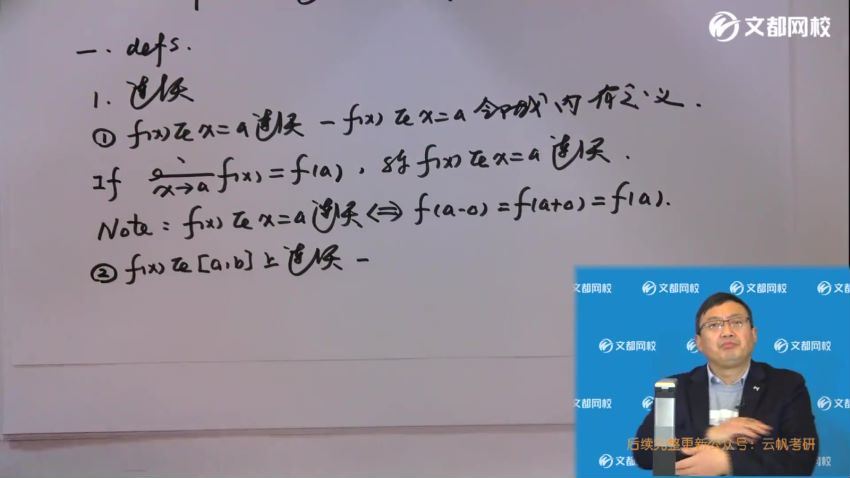 文都网校
一. defs.
1. 连续
① f(x)在x=a连续 — f(x)在x=a 邻域内有定义.
If lim x→a f(x)=f(a), 称f(x)在x=a连续.
Note: f(x)在x=a连续⇔f(a-0)=f(a+0)=f(a).
② f(x)在[a,b]上连续 —
文都网校 文都网校 文都网校 文都网校
文都网校 文都网校
文都网校 文都网校
后续完整更新公众号：云帆考研